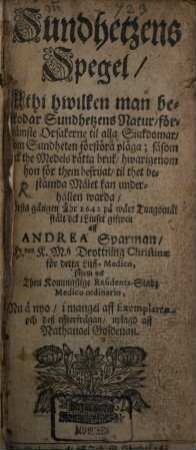 Sundhetzens
Spegel/
Uthi hwilken man be-
skodar Sundhetzens Natur/ för-
nämste Orsakerne til alla Siukdomar/
som Sundheten förstöra pläga; såsom
ock the Medels rätta bruk/ hwarigenom
hon för them befriat/ til thet be-
stämda Målet kan under-
hållen warda/
första gången Åhr 1642 på wårt Tungomål
stält och i Liuset gifwen
aff
ANDREA Sparman/
K. M:s Drottning Christinæ
för detta Lijff-Medico,
såsom ock
Then Konungslige Residents-Stadz
Medico ordinario,
Nu å nyo/ i mangel aff Exemplaren
och des efterfrågan/ uplagd aff
Nathanael Goldenau.